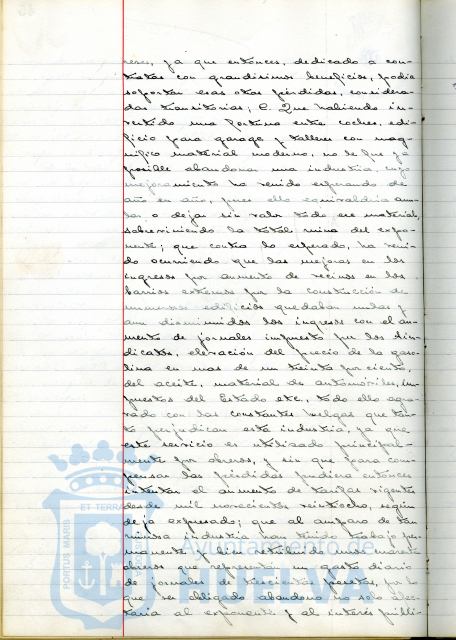 reses, ya que entonces, dedicado a con-
tratas con grandísimos beneficios, podía
soportar esas otras pérdidas, considera-
das transitorias; C. Que habiendo in-
vertido una fortuna entre coches, edi-
ficio para garage y talleres con mag-
nífico material moderno, no le fue ya
posible abandonar una industria, cuyo
mejoramiento ha venido esperando de
año en año, pues ello equivaldría anu-
lar o dejar sin valor todo ese material,
sobreviniendo la total ruina del expo-
nente; que contra lo esperado, ha veni-
do ocurriendo que las mejoras en los
ingresos por aumento de vecinos en los
barrios extremos por la construcción de
numerosos edificios quedaban nulas y
aun disminuidos los ingresos con el au-
mento de jornales impuesto por los Sin-
dicatos, elevación del precio de la gaso-
lina en mas de un treinta por ciento,
del aceite, material de automóviles, im-
puestos del Estado etc., todo ello agra-
vado con las constantes huelgas que tan-
to perjudican esta industria, ya que
este servicio es utilizado principal-
mente por obreros, y sin que para com-
pensar las pérdidas pudiera entonces
intentar el aumento de tarifas vigentes
desde mil novecientos veintiocho, según
deja expresado; que al amparo de tan
ruinosa industria han tenido trabajo per-
manente y bien retribuido unos
obreros que representan un gasto diario
de jornales de trescientas pesetas, por lo
que ser obligado abandono no solo afec-
taría al exponente y al interés públi-
PORTUS MARIS
ET TERRA
Ayuntamiento de